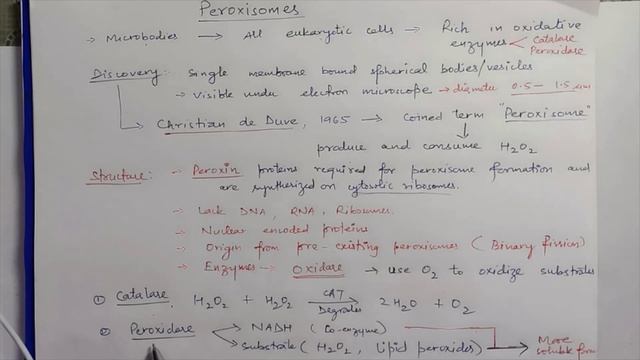 Peroxisomes
→ Microbodies → All eukaryotic cells → Rich in oxidative
enzymes < Catalase
Peroxidase
Discovery: Single membrane bound spherical bodies/vesicles
- Visible under electron microscope → diameter 0.5 - 1.5 µm
→ Christian de Duve, 1965 → Coined term "Peroxisome"
↓
produce and consume H2O2
Structure: → Peroxin proteins required for peroxisome formation and
are synthesized on cytosolic ribosomes.
→ Lack DNA, RNA, Ribosomes.
→ Nuclear encoded proteins
→ Origin from pre-existing peroxisomes (Binary fission)
→ Enzymes → Oxidase → use O2 to oxidize substrates
① Catalase H2O2 + H2O2 CAT→ 2H2O + O2
Degrades
② Peroxidase → NADH (Co-enzyme)
→ Substrate (H2O2, Lipid peroxides) → More
soluble form